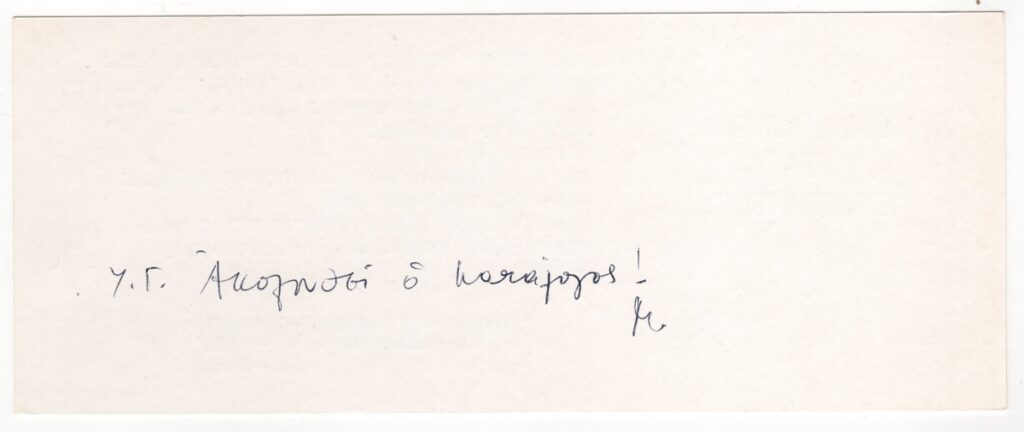 Υ.Γ. Ἀκολουθεῖ ὁ κατάλογος!
Μ.